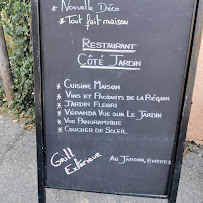 * Nouvelle Déco
* Tout fait maison
Restaurant
Côté Jardin
* Cuisine Maison
* Vins et Produits de la Région
* Jardin Fleuri
* Véranda Vue sur Le Jardin
* Vue Panoramique
* Coucher de Soleil
Grill
Extérieur
Au Jardin, Entrez